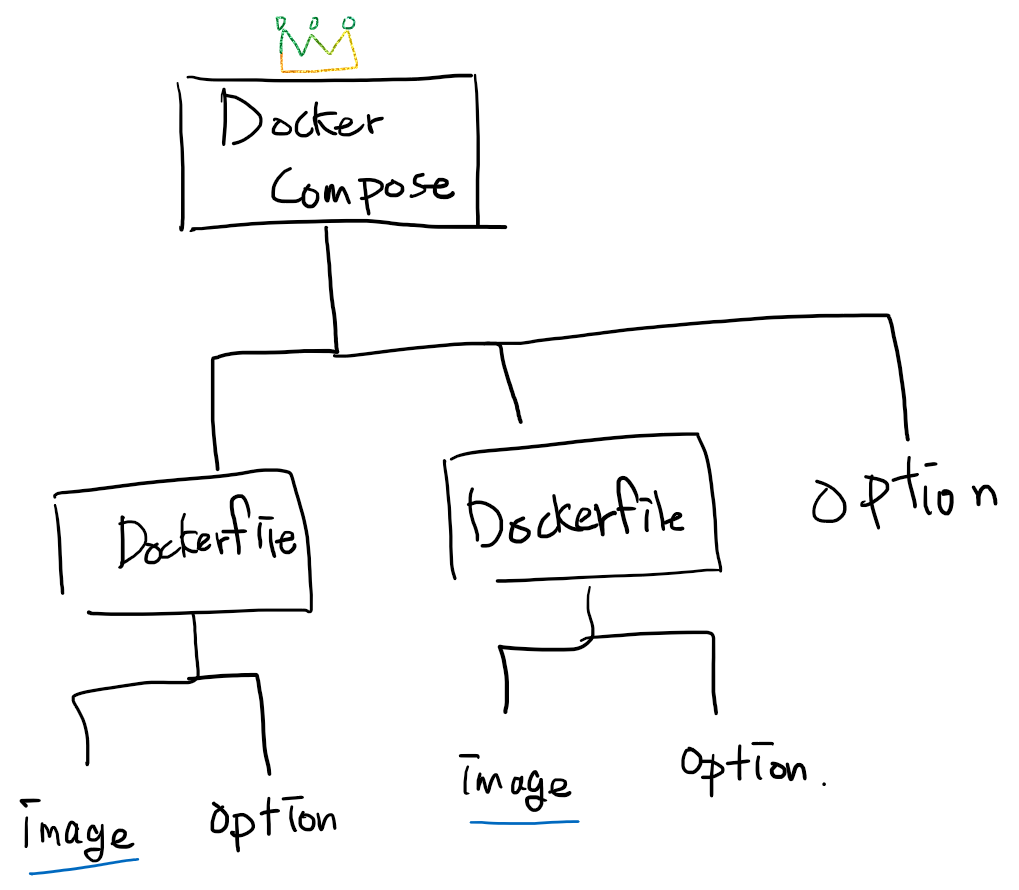 Docker
Compose
Dockerfile
Dockerfile
option
image
option
image
option.